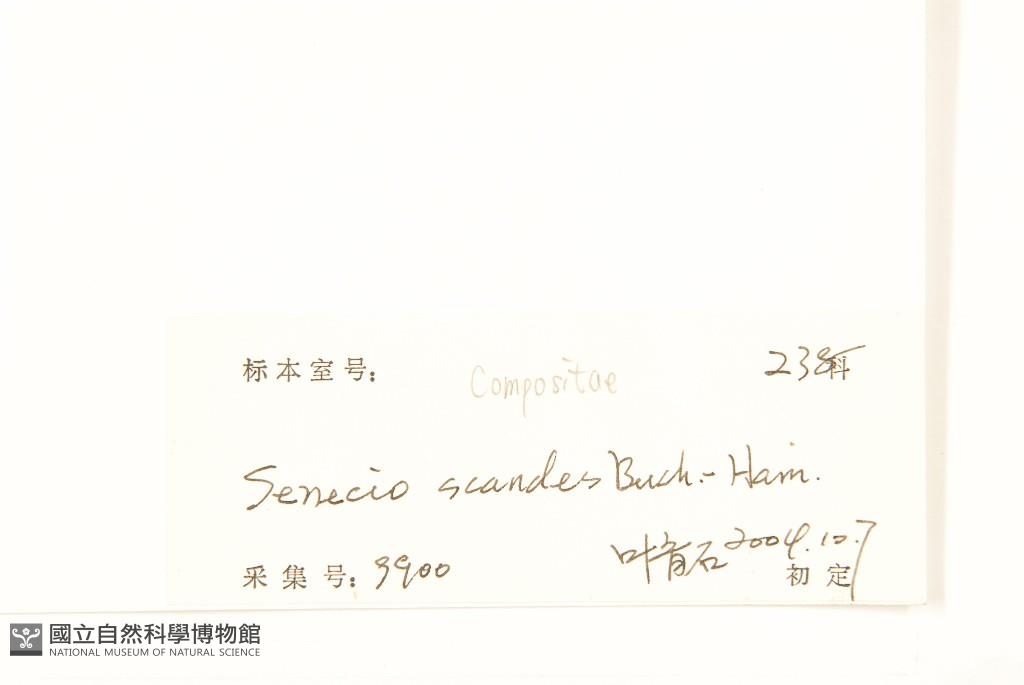 标本室号: Compositae 238科
Senecio scandes Buch.-Ham.
叶育石 2004.10.7
采集号: 9900 初定
國立自然科學博物館
NATIONAL MUSEUM OF NATURAL SCIENCE